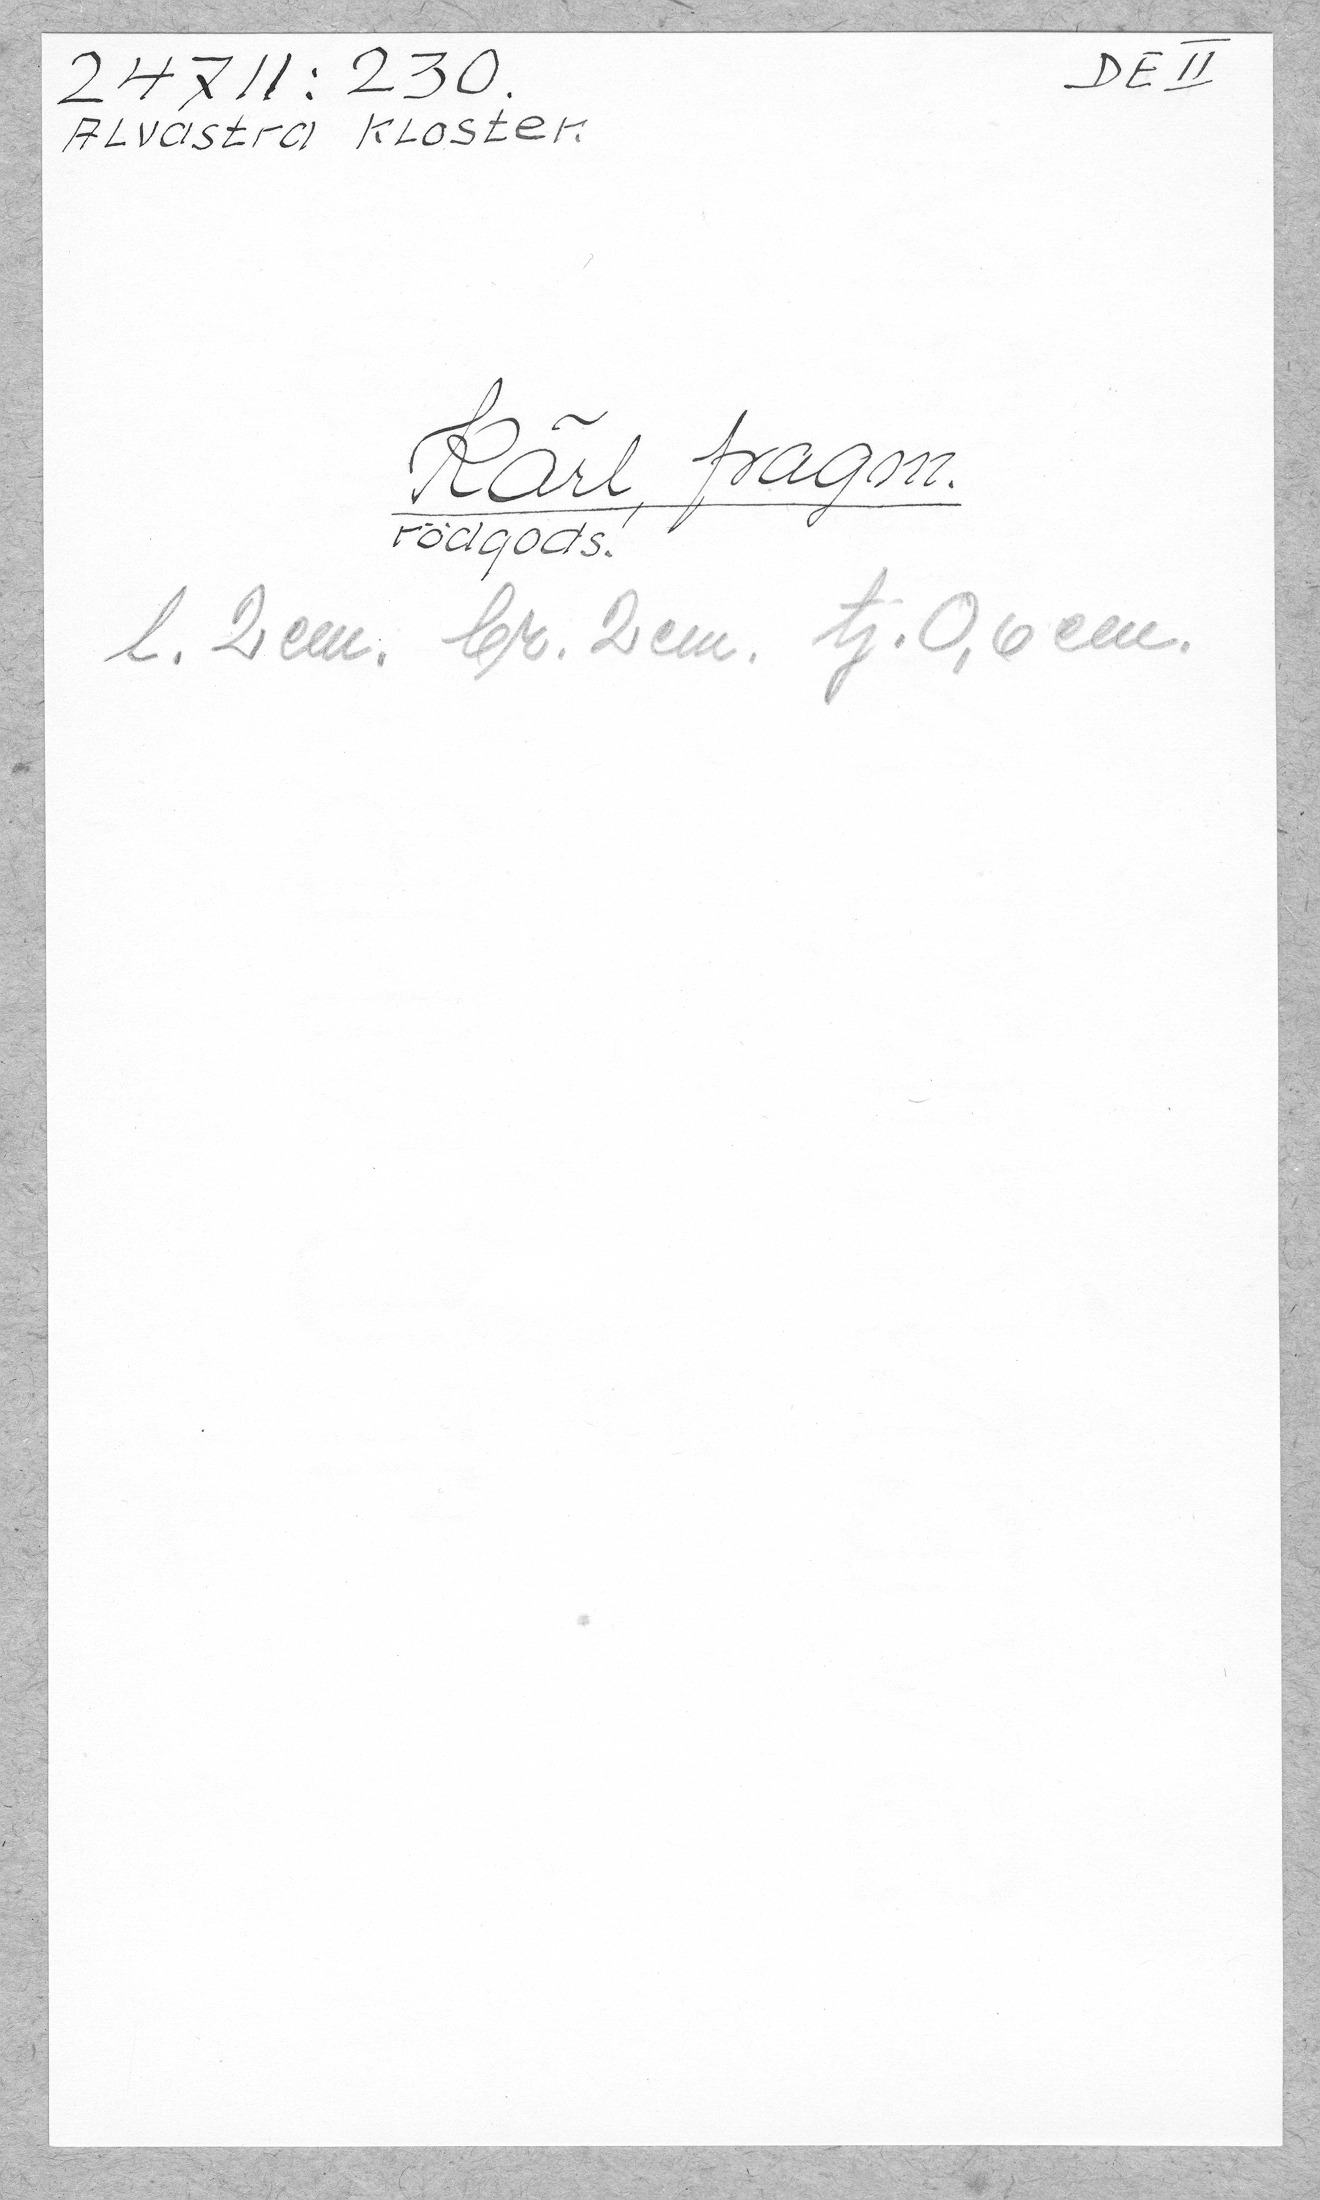 24711:230. DE II
Alvastra Kloster.
Kärl, fragm.
rödgods.
l. 2 cm. br. 2 cm. tj. 0,6 cm.